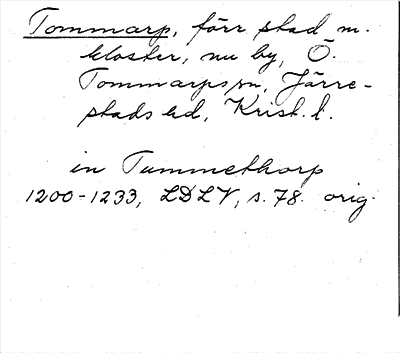 Tommarp, förr stad m.
kloster, nu by, Ö.
Tommarps sn, Järre-
stads hd, Krist. l.
in Tummethorp
1200-1233, LDLV, s. 78. orig.